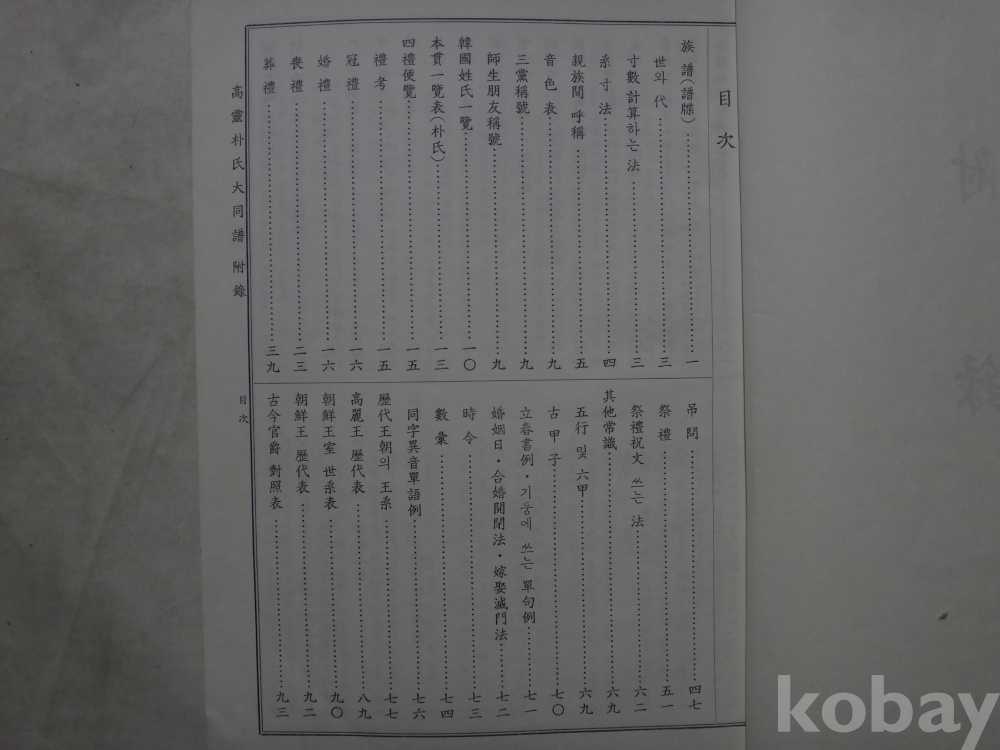 目次
族譜(譜牒)……一
世와 代……三
寸數 計算하는 法……三
系寸法……四
親族間 呼稱……五
音色表……九
三黨稱號……九
師生朋友稱號……九
韓國姓氏一覽……一〇
本貫一覽表(朴氏)……一三
四禮便覽……一五
禮考……一五
冠禮……一六
婚禮……一六
喪禮……二三
葬禮……三九
吊問……四七
祭禮……五一
祭禮祝文 쓰는 法……六二
其他常識……六九
五行 및 六甲……六九
古甲子……七〇
立春書例·기둥에 쓰는 單句例……七一
婚姻日·合婚開閉法·嫁娶滅門法……七二
時令……七三
數彙……七四
同字異音單語例……七六
歷代王朝의 王系……七七
高麗王 歷代表……八九
朝鮮王室 世系表……九〇
朝鮮王 歷代表……九二
古今官爵 對照表……九三
高靈朴氏大同譜 附錄
目次
kobay